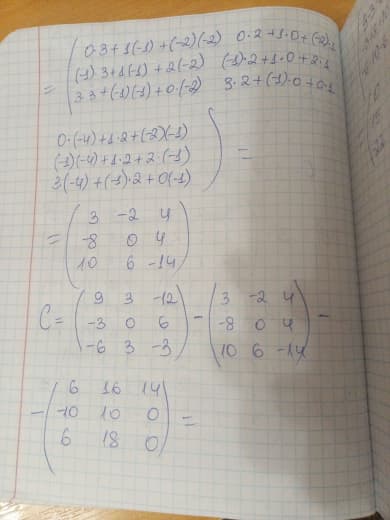 = ( 0·3+1(-1)+(-2)(-2) 0·2+1·0+(-2)·1
(-1)·3+1(-1)+2(-2) (-1)·2+1·0+2·1
3·3+(-1)(-1)+0·(-2) 3·2+(-1)·0+0·1
0·(-4)+1·2+(-2)(-1)
(-1)(-4)+1·2+2·(-1)
3(-4)+(-1)·2+0(-1) ) =
= ( 3 -2 4
-8 0 4
10 6 -14 )
C = ( 9 3 -12
-3 0 6
-6 3 -3 ) - ( 3 -2 4
-8 0 4
10 6 -14 ) -
- ( 6 16 14
-10 10 0
6 18 0 ) =